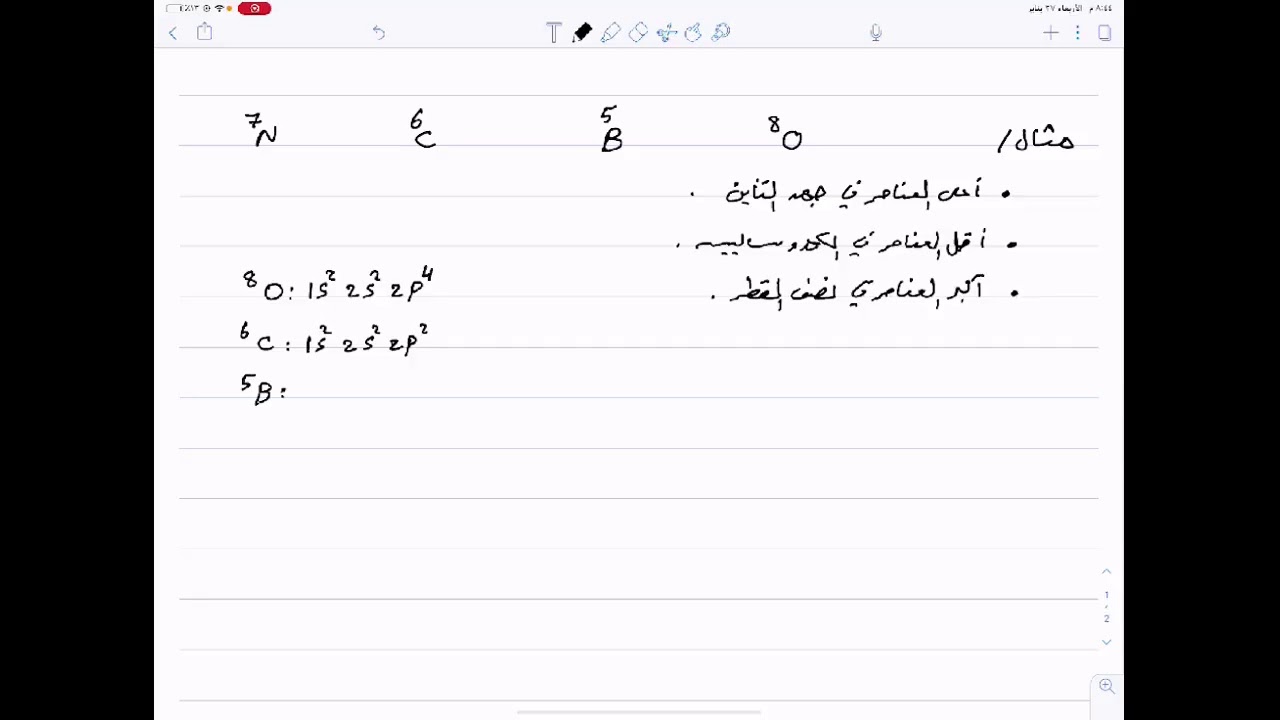 ٨:٤٤ م الأربعاء ٢٧ يناير
مثال/ ⁸O ⁵B ⁶C ⁷N
• أعلى العناصر في جهد التأين .
• أقل العناصر في الكهروسالبيه .
• أكبر العناصر في نصف القطر .
⁸O: 1s² 2s² 2p⁴
⁶C: 1s² 2s² 2p²
⁵B:
1
2